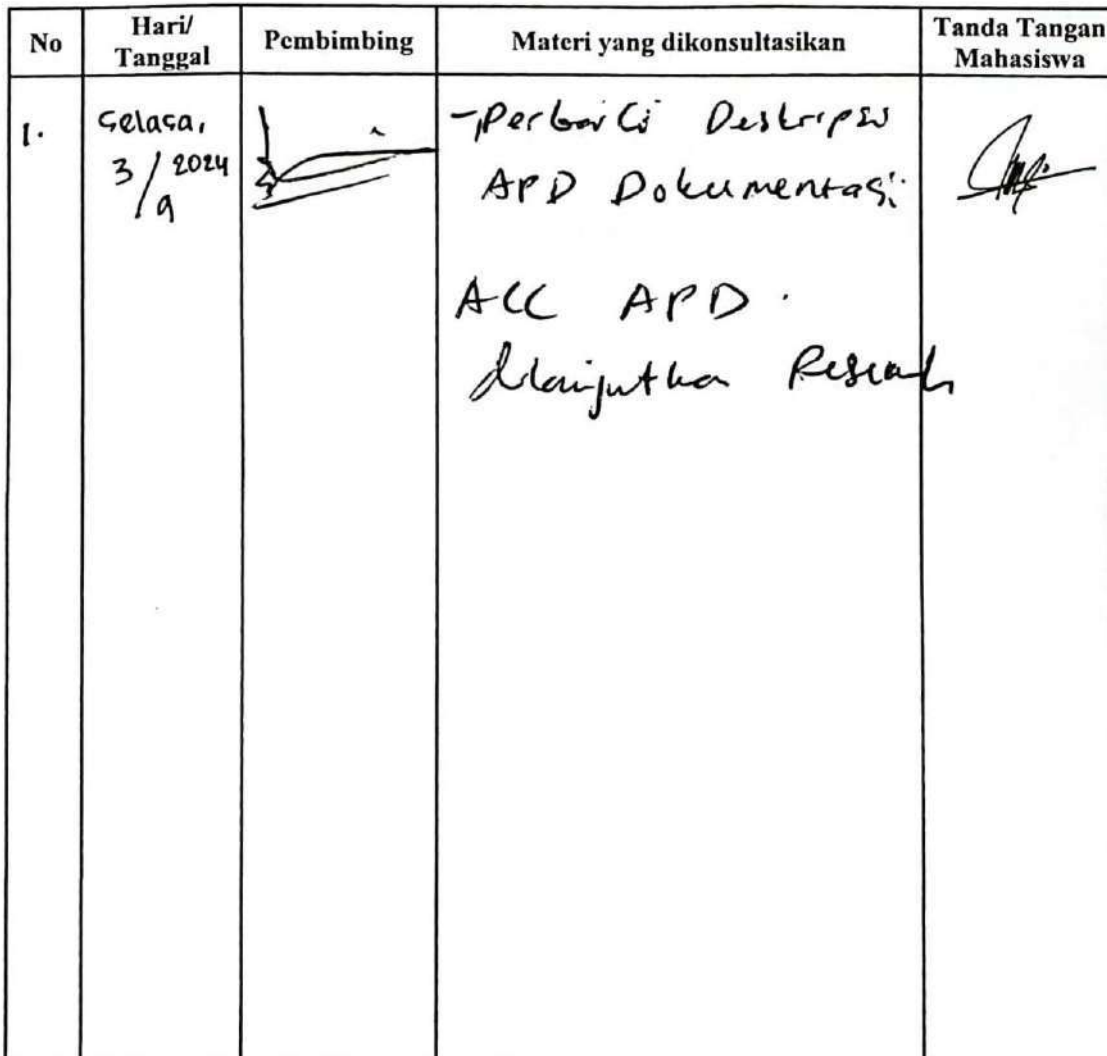 No
Hari/
Tanggal
Pembimbing
Materi yang dikonsultasikan
Tanda Tangan
Mahasiswa
1.
Selasa,
3/9 2024
- Perbaiki Deskripsi
APD Dokumentasi
ACC APD.
dilanjutkan Research